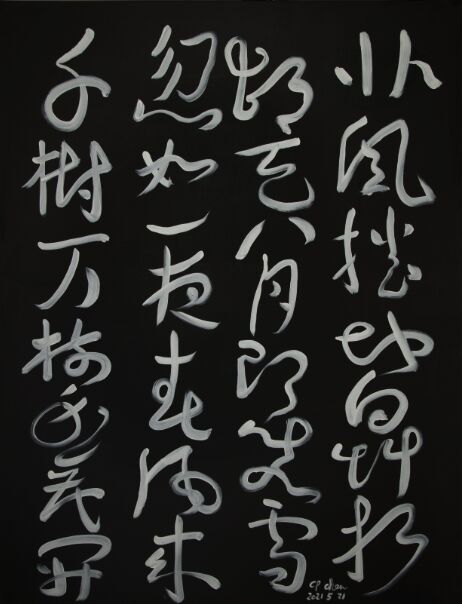 北風捲地白草折
胡天八月即飛雪
忽如一夜春風來
千樹万樹梨花開
CP Chen
2021 5 21